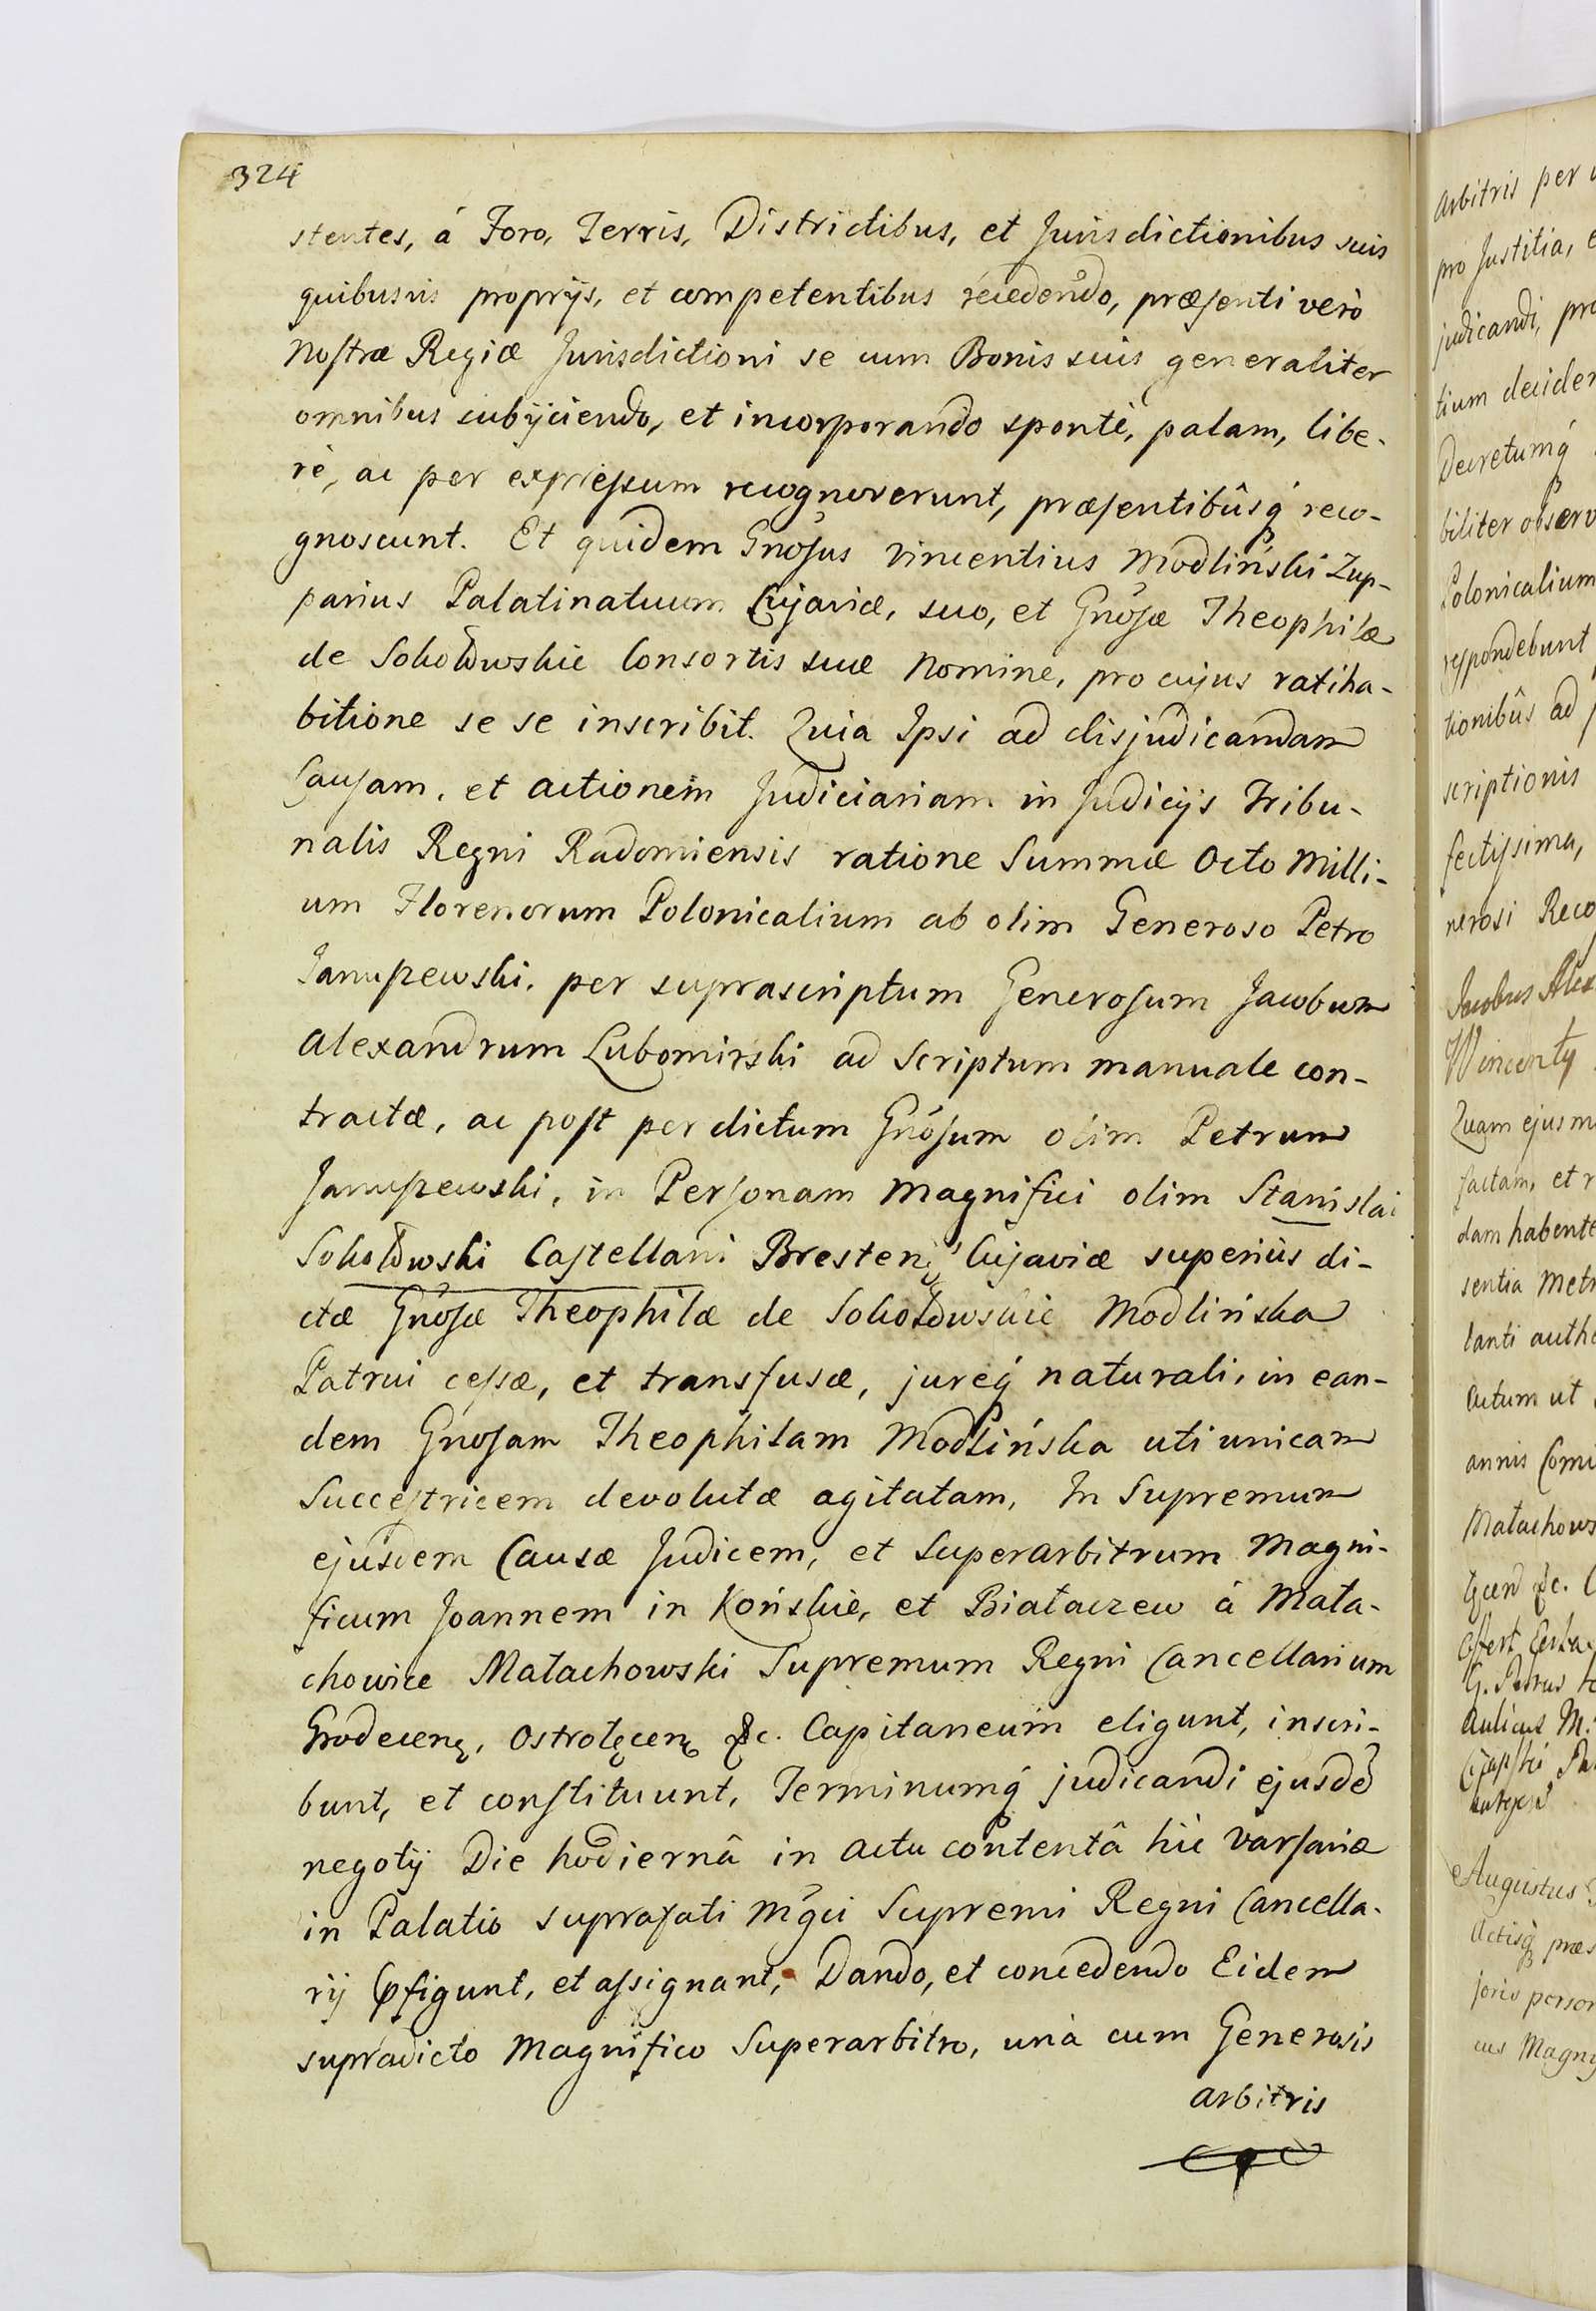 324
stentes, á Foro, Terris, Districtibus, et Jurisdictionibus suis
quibusvis proprijs, et competentibus recedendo, præsenti verò
Nostræ Regiæ Jurisdictioni se cum Bonis suis generaliter
omnibus subijciendo, et incorporando spontè, palam, libe-
rè, ac per expressum recognoverunt, præsentibûsq́ reco-
gnoscunt. Et quidem Gnõsus Vincentius Modliński Zup-
parius Palatinatuum Cujaviæ, suo, et Gnõsæ Theophilæ
de Sokołowskie Consortis suæ Nomine, pro cujus ratiha-
bitione se se inscribit. Quia Ipsi ad disjudicandam
Causam, et actionem Judiciariam in Judicijs Tribu-
nalis Regni Radomiensis ratione Summæ Octo Milli-
um Florenorum Polonicalium ab olim Generoso Petro
Januszewski, per suprascriptum Generosum Jacobum
Alexandrum Lubomirski ad Scriptum manuale con-
tractæ, ac post per dictum Gnõsum olim Petrum
Januszewski, in Personam Magnifici olim Stanislai
Sokołowski Castellani Bresten: Cujaviæ superiùs di-
ctæ Gnõsæ Theophilæ de Sokołowskie Modlińska
Patrui cessæ, et transfusæ, jureq́ naturali, in ean-
dem Gnõsam Theophilam Modlińska uti unicam
Successtricem devolutæ agitatam, In Supremum
ejusdem Causæ Judicem, et Superarbitrum Magni-
ficum Joannem in Końskie, et Białaczew á Mała-
chowice Małachowski Supremum Regni Cancellarium
Grodecen, Ostrołęcen &c. Capitaneum eligunt, inscri-
bunt, et constituunt, Terminumq́ judicandi ejusdẽ
negotij Die hodiernâ in actu contentâ hîc Varsaviæ
in Palatio suprafati Mg̃ci Supremi Regni Cancella-
rij p̃figunt, et assignant, Dando, et concedendo Eidem
supradicto Magnifico Superarbitro, unà cum Generosis
arbitris
Arbitris per
pro Justitia,
judicandi,
tium decider
Decretumq́
biliter observ
Polonicalium
respondebunt
tionibûs ad
scriptionis
fectissima,
nerosi Reco
Jacobus Alex
Wincenty
Quam ejusm
factam, et r
dam habente
sentia Metr
tanti autho
cutum ut
annis Comi
Małachows
łęcen &c.
G. Petrus
Aulicus M.
Augustus
Actisq́ præs
joris person
cus Magnif